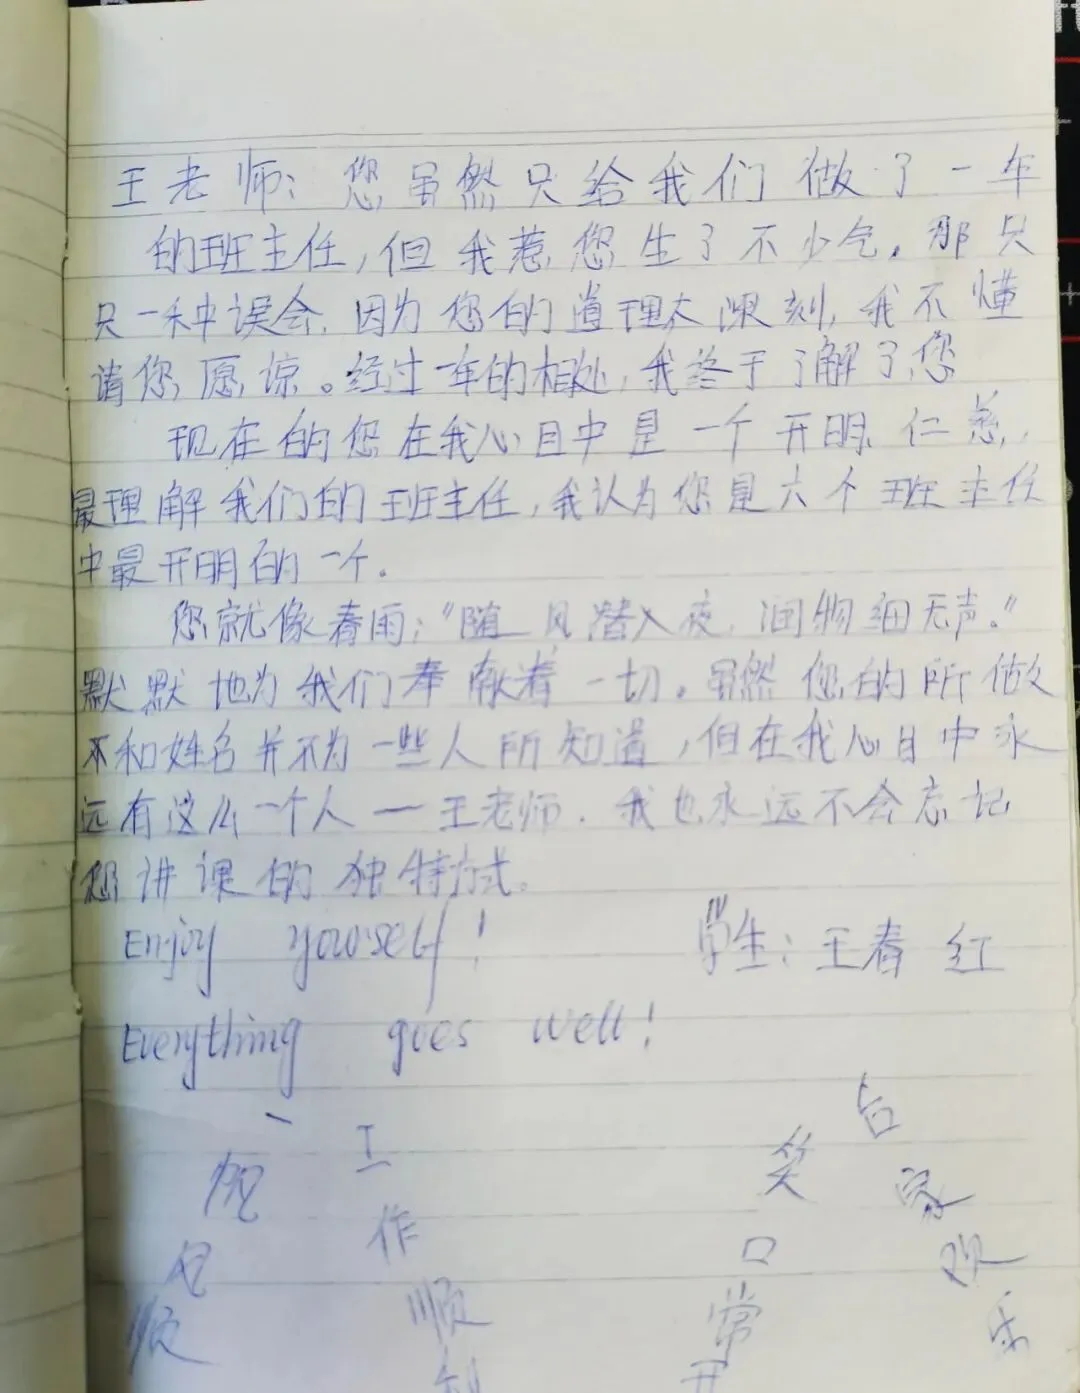 王老师：您虽然只给我们做了一年
的班主任，但我惹您生了不少气。那只
只一种误会，因为您的道理太深刻，我不懂
请您愿谅。经过一年的相处，我终于了解了您
现在的您在我心目中是一个开明、仁慈，
最理解我们的班主任，我认为您是六个班主任
中最开明的一个。
您就像春雨；“随风潜入夜，润物细无声。”
默默地为我们奉献着一切。虽然您的所做
不和姓名并不为一些人所知道，但在我心目中永
远有这么一个人一王老师．我也永远不会忘记
您讲课的独特方式。
Enjoy yourself！ 学生：王春红
Everything goes well！
一帆
风
顺
工作顺利
笑口常开
合家欢乐